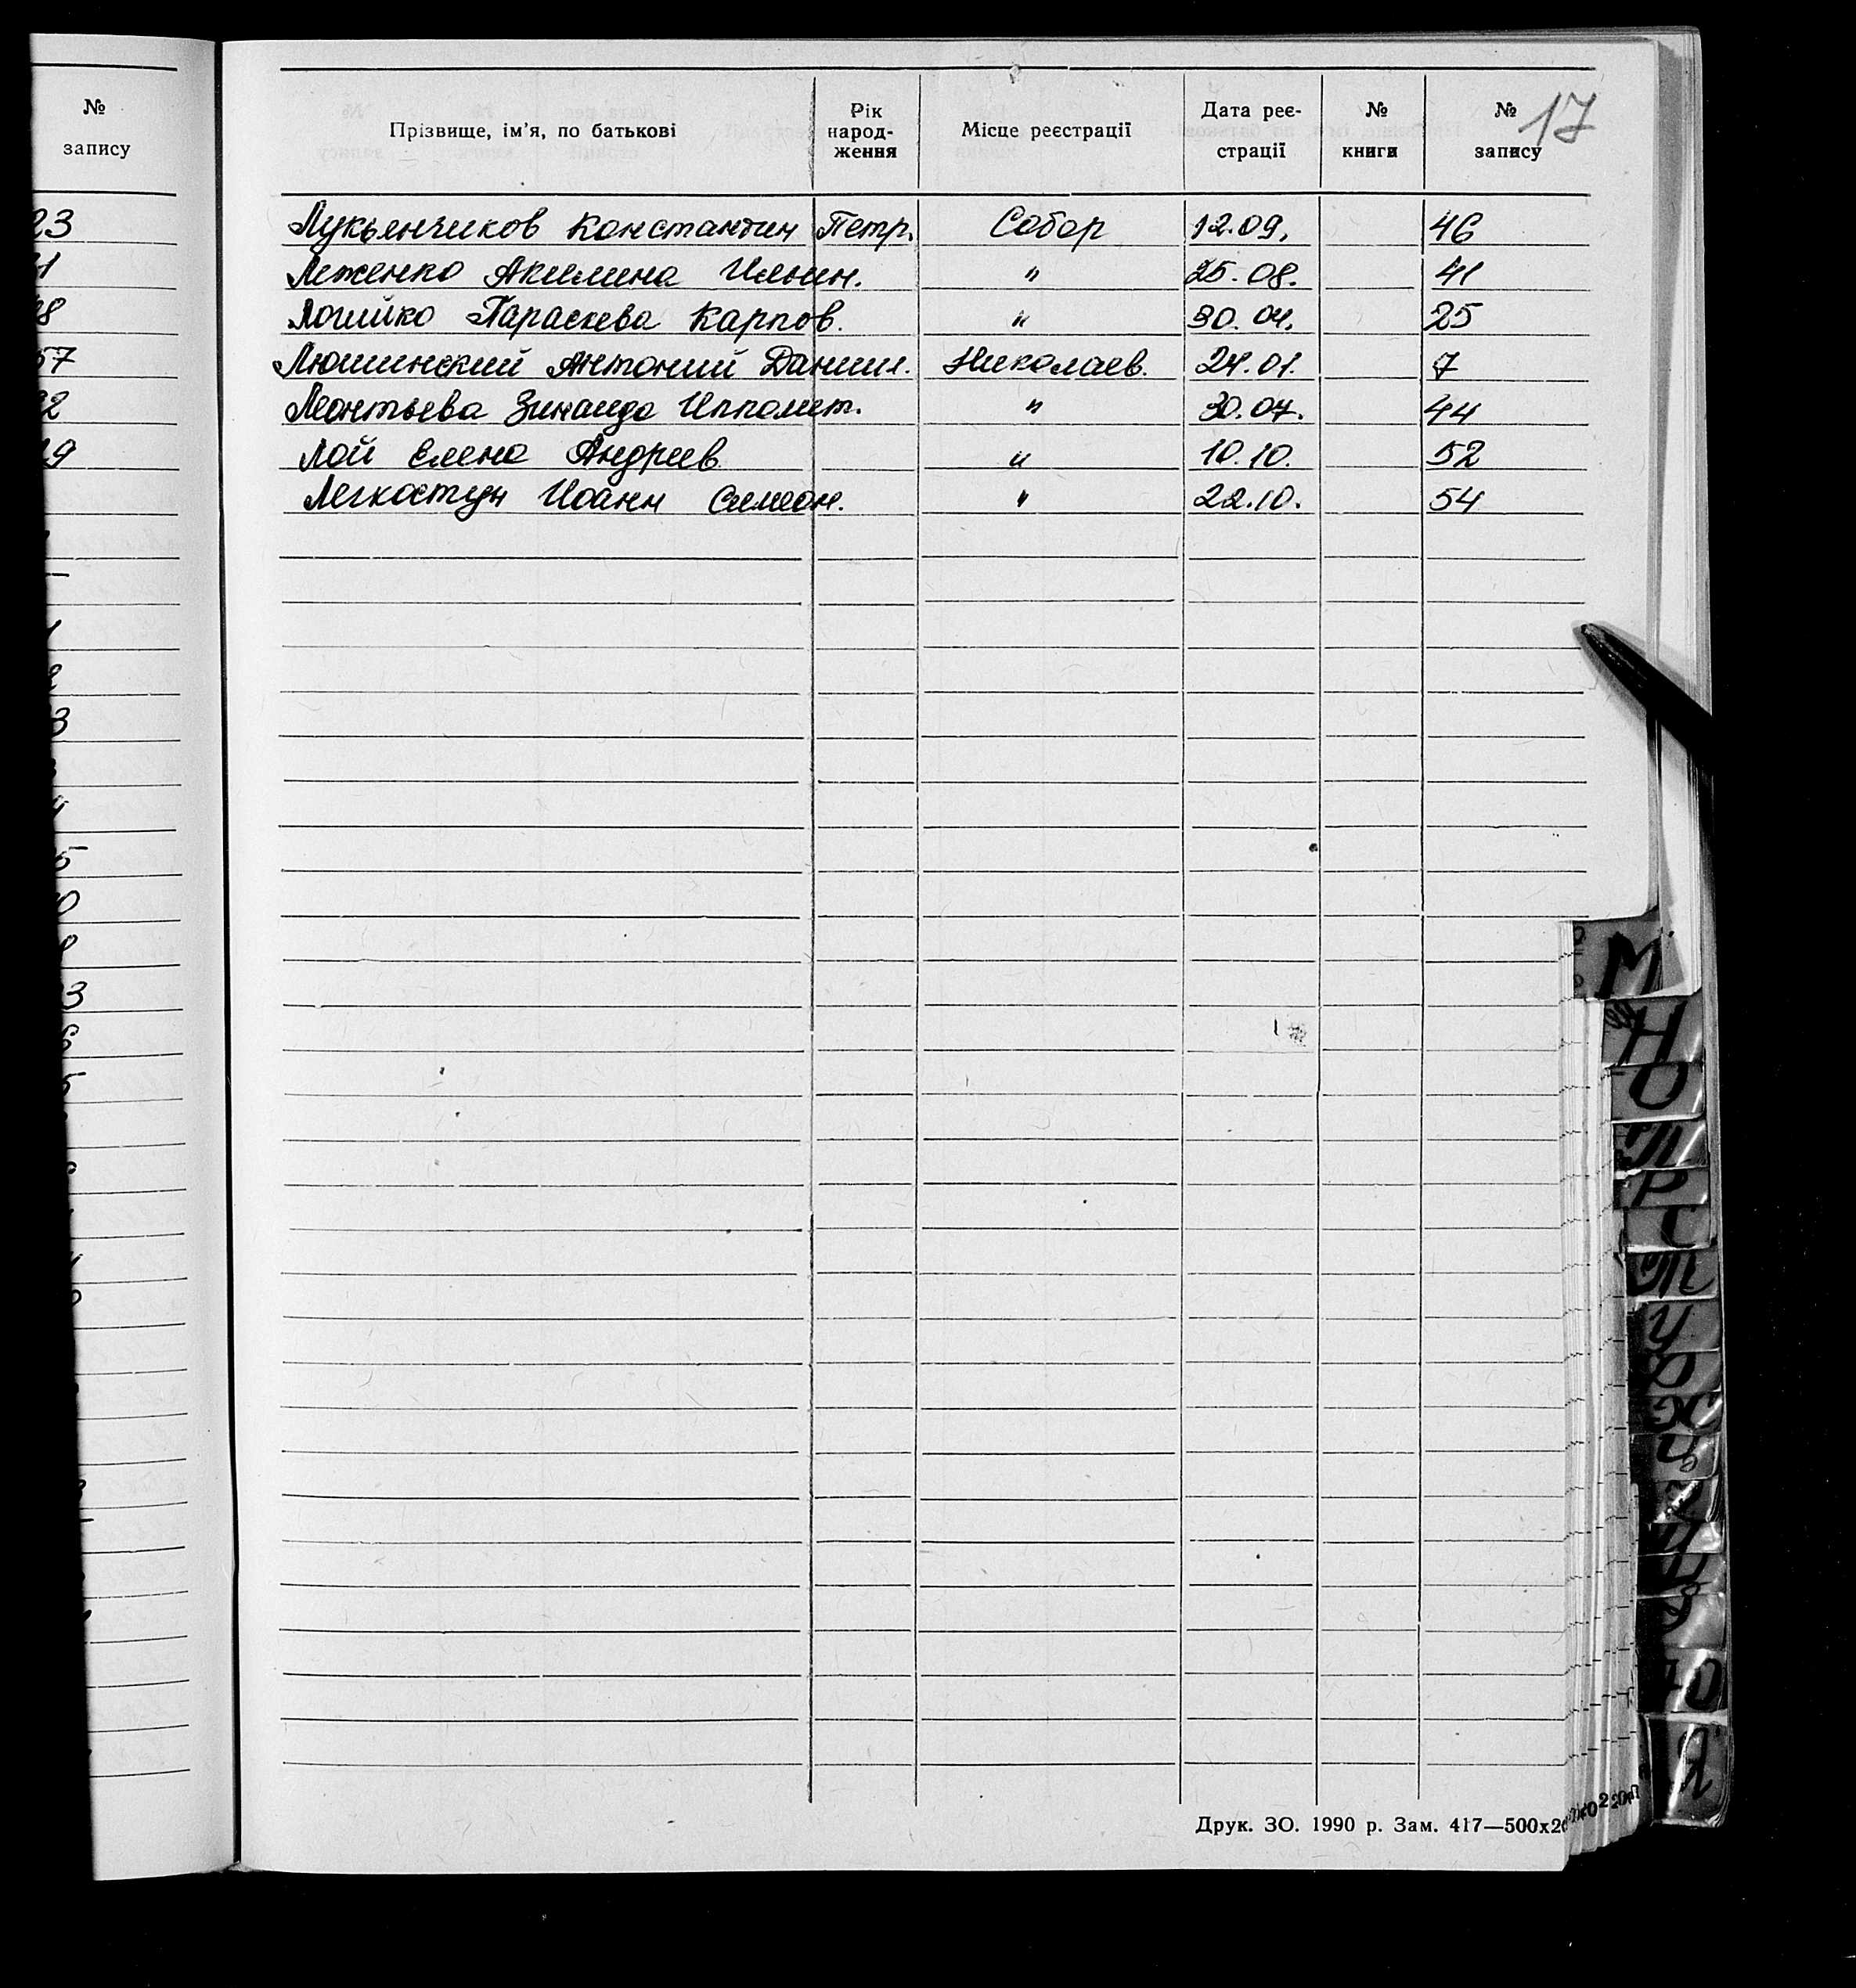 №
запису
23
57
17
Прізвище, ім'я, по батькові
Рік
народ-
ження
Місце реєстрації
Дата реє-
страції
№
книги
№
запису
Лукьянчиков Константин Петр. Собор 12.09. 46
Леженко Акилина Ильин. " 25.08. 41
Параскева Карпов. " 30.04. 25
Люшинский Антоний Даниил. Николаев. 24.01. 7
Леонтьева Зинаида Ипполит. " 30.07. 44
Лой Елена Андреев " 10.10. 52
Легкоступ Иоанн Симеон. " 22.10. 54
М
Н
О
П
Р
С
Т
У
Ф
Х
Ц
Ю
Я
Друк. ЗО. 1990 р. Зам. 417—500х20